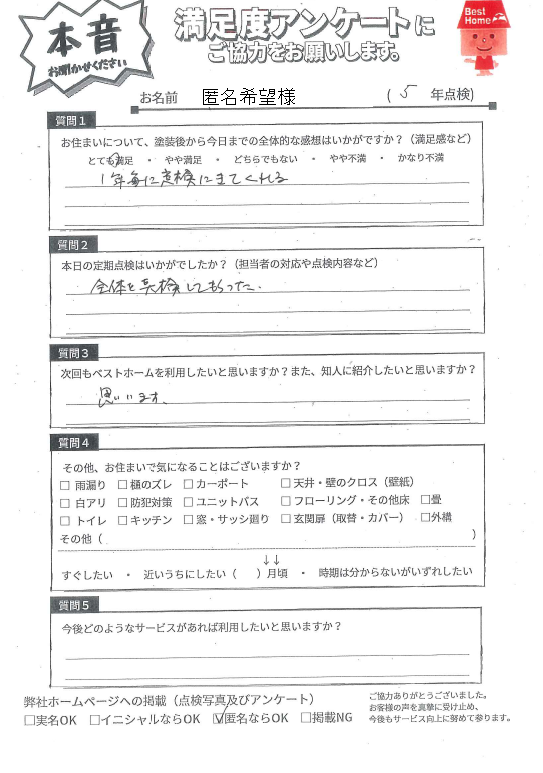 本音
お聞かせください
満足度アンケートに
ご協力をお願いします。
Best Home
お名前 匿名希望様 (5 年点検)
質問1
お住まいについて、塗装後から今日までの全体的な感想はいかがですか？（満足感など）
とても満足 ・ やや満足 ・ どちらでもない ・ やや不満 ・ かなり不満
1年毎に点検にきてくれる
質問2
本日の定期点検はいかがでしたか？（担当者の対応や点検内容など）
全体を点検してもらった.
質問3
次回もベストホームを利用したいと思いますか？また、知人に紹介したいと思いますか？
思います、
質問4
その他、お住まいで気になることはございますか？
□ 雨漏り □ 樋のズレ □ カーポート □ 天井・壁のクロス（壁紙）
□ 白アリ □ 防犯対策 □ ユニットバス □ フローリング・その他床 □畳
□ トイレ □ キッチン □ 窓・サッシ廻り □ 玄関扉（取替・カバー） □外構
その他（ ）
↓↓
すぐしたい ・ 近いうちにしたい（ ）月頃 ・ 時期は分からないがいずれしたい
質問5
今後どのようなサービスがあれば利用したいと思いますか？
弊社ホームページへの掲載（点検写真及びアンケート）
□実名OK □イニシャルならOK ☑匿名ならOK □掲載NG
ご協力ありがとうございました。
お客様の声を真摯に受け止め、
今後もサービス向上に努めて参ります。